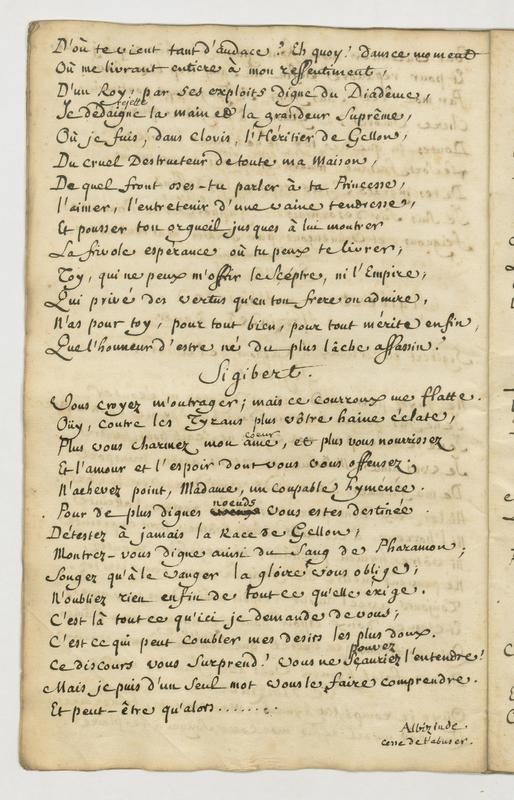 D'où te vient tant d'audace? Eh quoy! dans ce moment
Où me livrant entiere à mon ressentiment,
D'un Roy, par ses exploits digne du Diadême,
rejette
Je dédaigne la main et la grandeur Suprême,
Où je fuis, dans Clovis, l'Heritier de Gellon,
Du cruel Destructeur de toute ma Maison,
De quel front oses-tu parler à ta Princesse,
l'aimer, l'entretenir d'une vaine tendresse,
Et pousser ton orgueil jusques à lui montrer
La frivole esperance où tu peux te livrer;
Toy, qui ne peux m'offrir le Sceptre, ni l'Empire;
Qui privé des vertus qu'en ton frere on admire,
N'as pour toy, pour tout bien, pour tout mérite enfin,
Que l'honneur d'estre né du plus lâche assassin?
Sigibert.
Vous croyez m'outrager; mais ce courroux me flatte.
Oüy, contre les Tyrans plus vôtre haine éclate,
coeur
Plus vous charmez mon ame, et plus vous nourrissez
Et l'amour et l'espoir dont vous vous offensez.
N'achevez point, Madame, un coupable hymenée.
noeuds
Pour de plus dignes vous estes destinée
Détestez à jamais la Race de Gellon;
Montrez-vous digne ainsi du Sang de Pharamon;
Songez qu'à le vanger la gloire vous oblige;
N'oubliez rien enfin de tout ce qu'elle exige.
C'est là tout ce qu'ici je demande de vous;
C'est ce qui peut combler mes desirs les plus doux.
pouvez
Ce discours vous surprend? vous ne sçauriez l'entendre!
Mais je puis d'un seul mot vous le faire comprendre.
Et peut-être qu'alors........
Albizinde.
cesse de t'abuser.